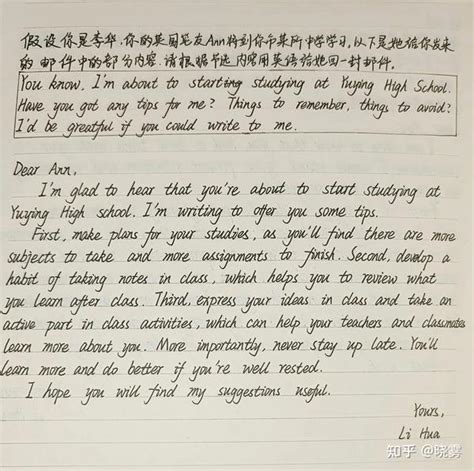 假设你是李华,你的英国笔友Ann将到你市某所中学学习,以下是她给你发来
的邮件中的部分内容.请根据节选内容用英语给她回一封邮件.
You know, I'm about to starting studying at Yuying High School.
Have you got any tips for me? Things to remember, things to avoid?
I'd be greatful if you could write to me.
Dear Ann,
I'm glad to hear that you're about to start studying at
Yuying High school. I'm writing to offer you some tips.
First, make plans for your studies, as you'll find there are more
subjects to take and more assignments to finish. Second, develop a
habit of taking notes in class, which helps you to review what
you learn after class. Third, express your ideas in class and take an
active part in class activities, which can help your teachers and classmates
learn more about you. More importantly, never stay up late. You'll
learn more and do better if you're well rested.
I hope you will find my suggestions useful.
Yours,
Li Hua
知乎 @晓雾